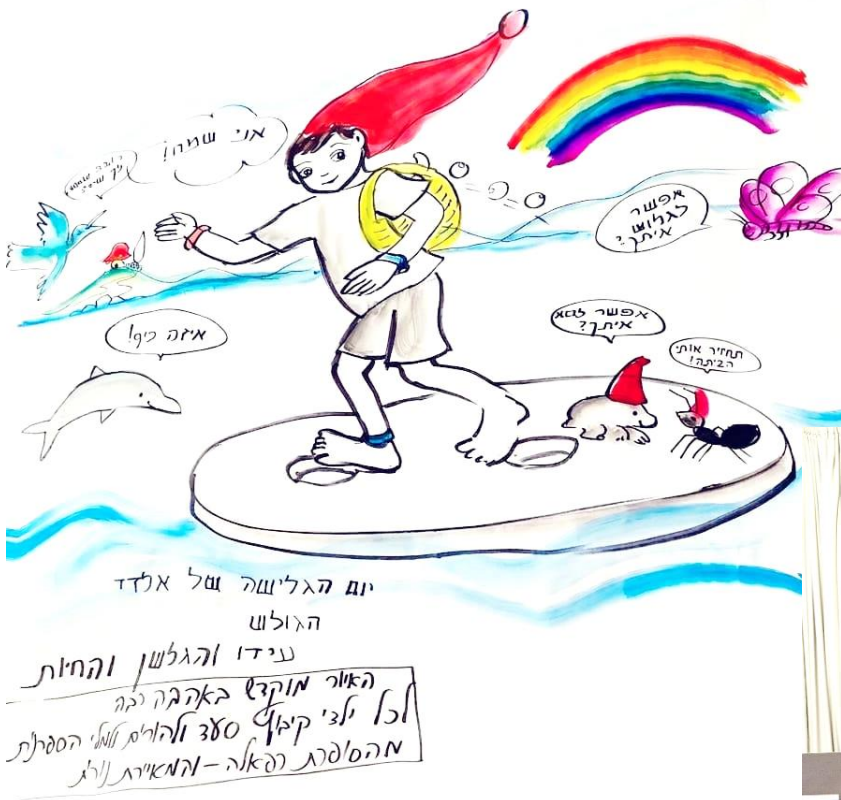 אני שמח!
אפשר
לגלוש
איתך?
איזה כיף!
אפשר לבוא
איתך?
תחזיר אותי
הביתה!
יום הגלישה של אלדד
הגולש
עידו והגלשן והחיות
האיור מוקדש באהבה רבה
לכל ילדי קיבוץ סעד ולהורים ולמלי הספרנית
מהסופרת רפאלה – והמאיירת נורית